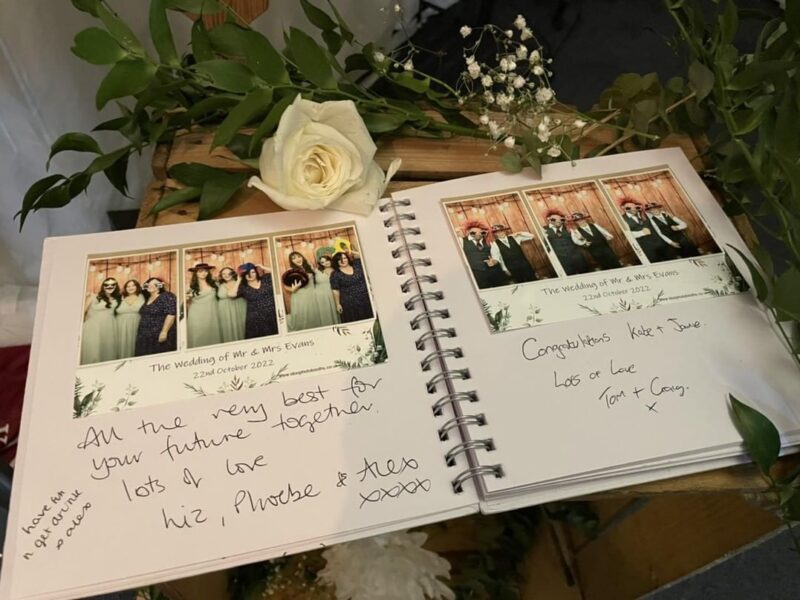 The Wedding of Mr & Mrs Evans
22nd October 2022
All the very best for
your future together.
lots of love
Liz, Phoebe & Alex
xxxx
have fun
n get drunk
Alex
The Wedding of Mr & Mrs Evans
22nd October 2022
Congratulations Kate + Jamie.
Lots of Love
Tom + Craig.
x